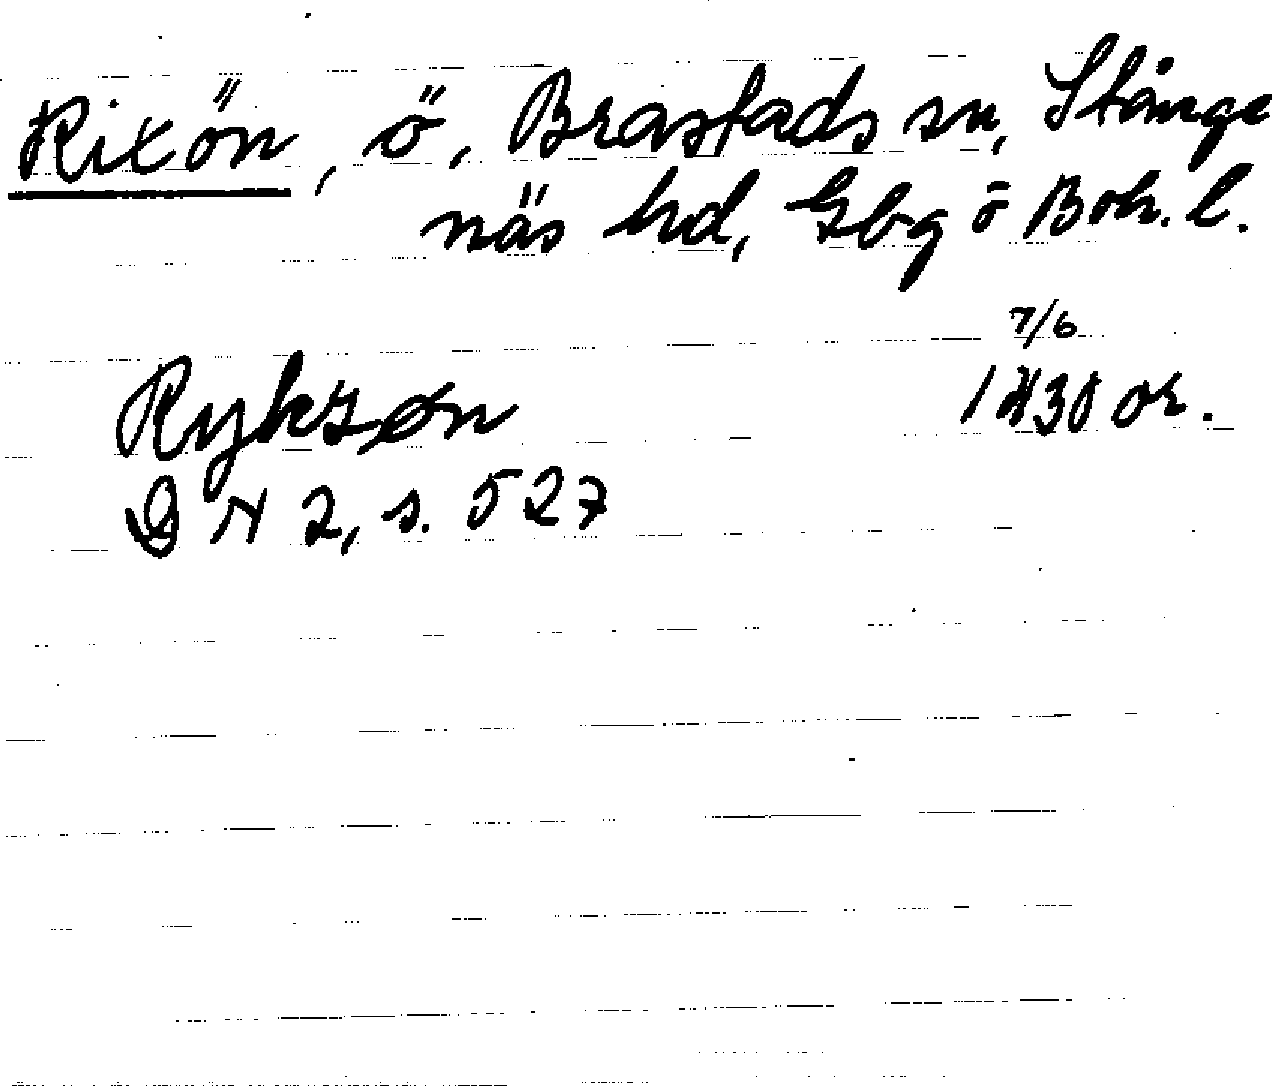 Rixön, ö, Brastads sn, Stånge
näs hd, Gbg ō Boh. l.
7/6
Rykzøn 1430 or.
DN 2, s. 527